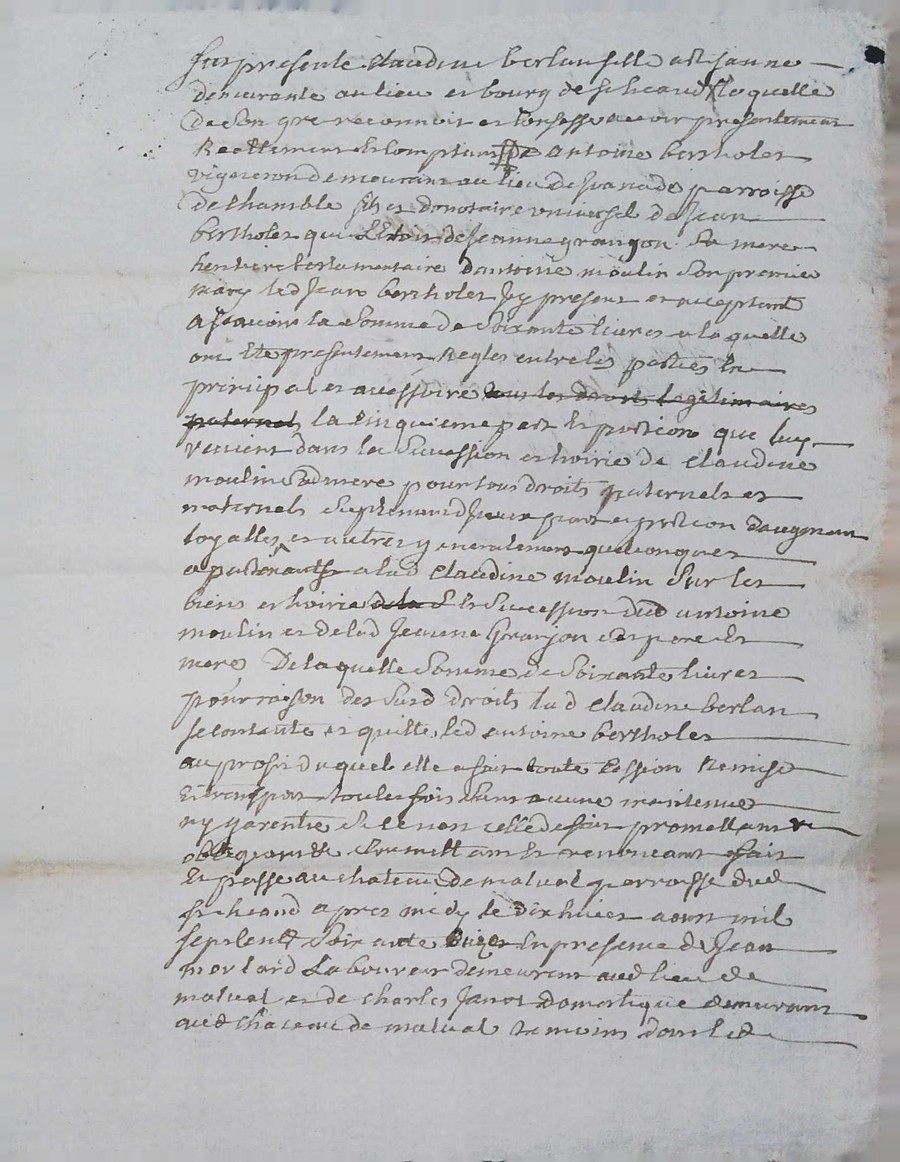 fut presente Claudine berlan fille a St Jeanne
demeurante au lieu et bourg de St heand laquelle
de son gre reconnoit et confesse avoir presentement
Reellement et comptant # de antoine bertholet
vigneron demeurant au lieu de parroisse
de Chamble fils et donataire universel de Jean
bertholet qui Letoit de Jeanne grangon Sa mere
heritiere testamentaire dantoine moulin Son premier
mary led Jean bertholet Icy present et acceptant
a scavoir la Somme de Soixante livres a la quelle
ont Ete presentement Regles entre les parties En
principal et accessoire tous les droits legitimaires
paternels la cinquieme part Et portion que luy
revient dans la Succession et hoirie de Claudine
moulin Sad mere pour tous droits paternels et
maternels Suplement Jceux part et portion daugment
logalles et autres generalement quelconques
apartenants a lad Claudine moulin Sur les
biens et hoirie de la d Et Succession dud antoine
moulin et de lad Jeanne Granjon Ses pere Et
mere De laquelle Somme de Soixante livres
pour raison des Susd droits lad Claudine berlan
Se contente et quitte led antoine bertholet
au profit duquel elle a fait toute Cession Remise
Et transport toutes fois Sans aucune maintenue
ny garentie Si ce non celle de fait promettant
obligeant Soumettant Et renonceant fait
Et passe au chateau De malval parroisse dud
St heand apres medy le dix huict aoust mil
Sept Cent Soixante En presence de Jean
morlard Laboureur demeurant aud lieu de
malval et de charles Janot domestique demeurant
aud Chateau de malval temoins dont led